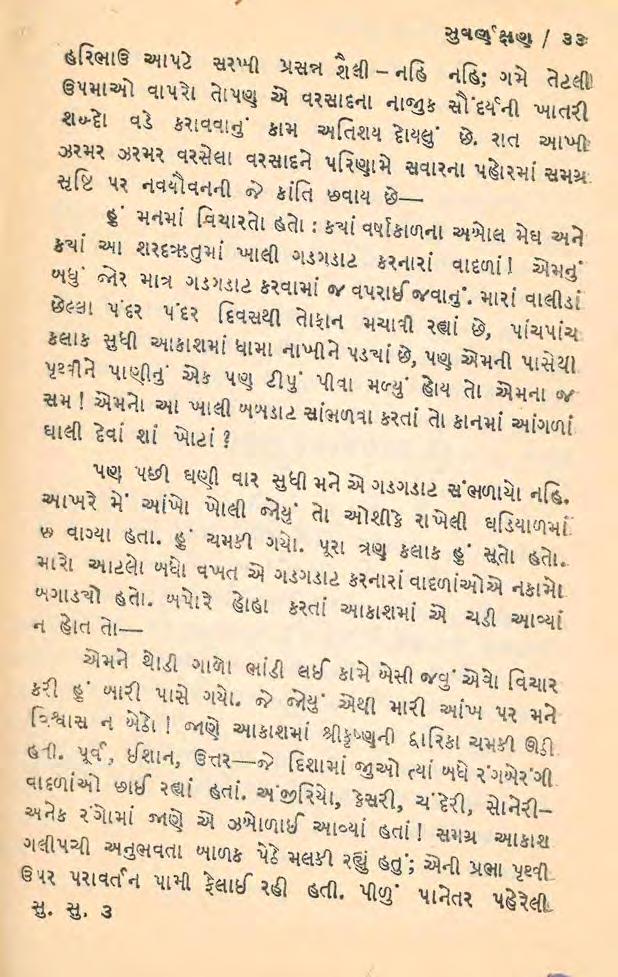 સુવર્ણક્ષણ / ૩૩
હરિભાઉ આપટે સરખી પ્રસન્ન શૈલી – નહિ નહિ; ગમે તેટલી
ઉપમાઓ વાપરો તોપણ એ વરસાદના નાજુક સૌંદર્યની ખાતરી
શબ્દો વડે કરાવવાનું કામ અતિશય દોયલું છે. રાત આખી
ઝરમર ઝરમર વરસેલા વરસાદને પરિણામે સવારના પહોરમાં સમગ્ર
સૃષ્ટિ પર નવયૌવનની જે કાંતિ છવાય છે—
હું મનમાં વિચારતો હતો : કયાં વર્ષાકાળના અબોલ મેઘ અને
કયાં આ શરદઋતુમાં ખાલી ગડગડાટ કરનારાં વાદળાં! એમનું
બધું જોર માત્ર ગડગડાટ કરવામાં જ વપરાઈ જવાનું. મારાં વાલીડાં
છેલ્લા પંદર પંદર દિવસથી તોફાન મચાવી રહ્યાં છે, પાંચપાંચ
કલાક સુધી આકાશમાં ધામા નાખીને પડ્યાં છે, પણ એમની પાસેથી
પૃથ્વીને પાણીનું એક પણ ટીપું પીવા મળ્યું હોય તો એમના જ
સમ ! એમનો આ ખાલી બબડાટ સાંભળવા કરતાં તો કાનમાં આંગળાં
ઘાલી દેવાં શાં ખોટાં ?
પણ પછી ઘણી વાર સુધી મને એ ગડગડાટ સંભળાયો નહિ.
આખરે મેં આંખો ખોલી જોયું તો ઓશીકે રાખેલી ઘડિયાળમાં
છ વાગ્યા હતા. હું ચમકી ગયો. પૂરા ત્રણ કલાક હું સૂતો હતો.
મારો આટલો બધો વખત એ ગડગડાટ કરનારાં વાદળાંઓએ નકામો
બગાડ્યો હતો. બપોરે હોહા કરતાં આકાશમાં એ ચડી આવ્યાં
ન હોત તો—
એમને થોડી ગાળો ભાંડી લઈ કામે બેસી જવું એવો વિચાર
કરી હું બારી પાસે ગયો. જે જોયું એથી મારી આંખ પર મને
વિશ્વાસ ન બેઠો ! જાણે આકાશમાં શ્રીકૃષ્ણની દ્વારિકા ચમકી ઊઠી
હતી. પૂર્વ, ઈશાન, ઉત્તર—જે દિશામાં જુઓ ત્યાં બધે રંગબેરંગી
વાદળાંઓ છાઈ રહ્યાં હતાં. અંજીરિયો, કેસરી, ચંદેરી, સોનેરી–
અનેક રંગોમાં જાણે એ ઝબોળાઈ આવ્યાં હતાં ! સમગ્ર આકાશ
ગલીપચી અનુભવતા બાળક પેઠે મલકી રહ્યું હતું; એની પ્રભા પૃથ્વી
ઉપર પરાવર્તન પામી ફેલાઈ રહી હતી. પીળું પાનેતર પહેરેલી
સુ. સુ. ૩